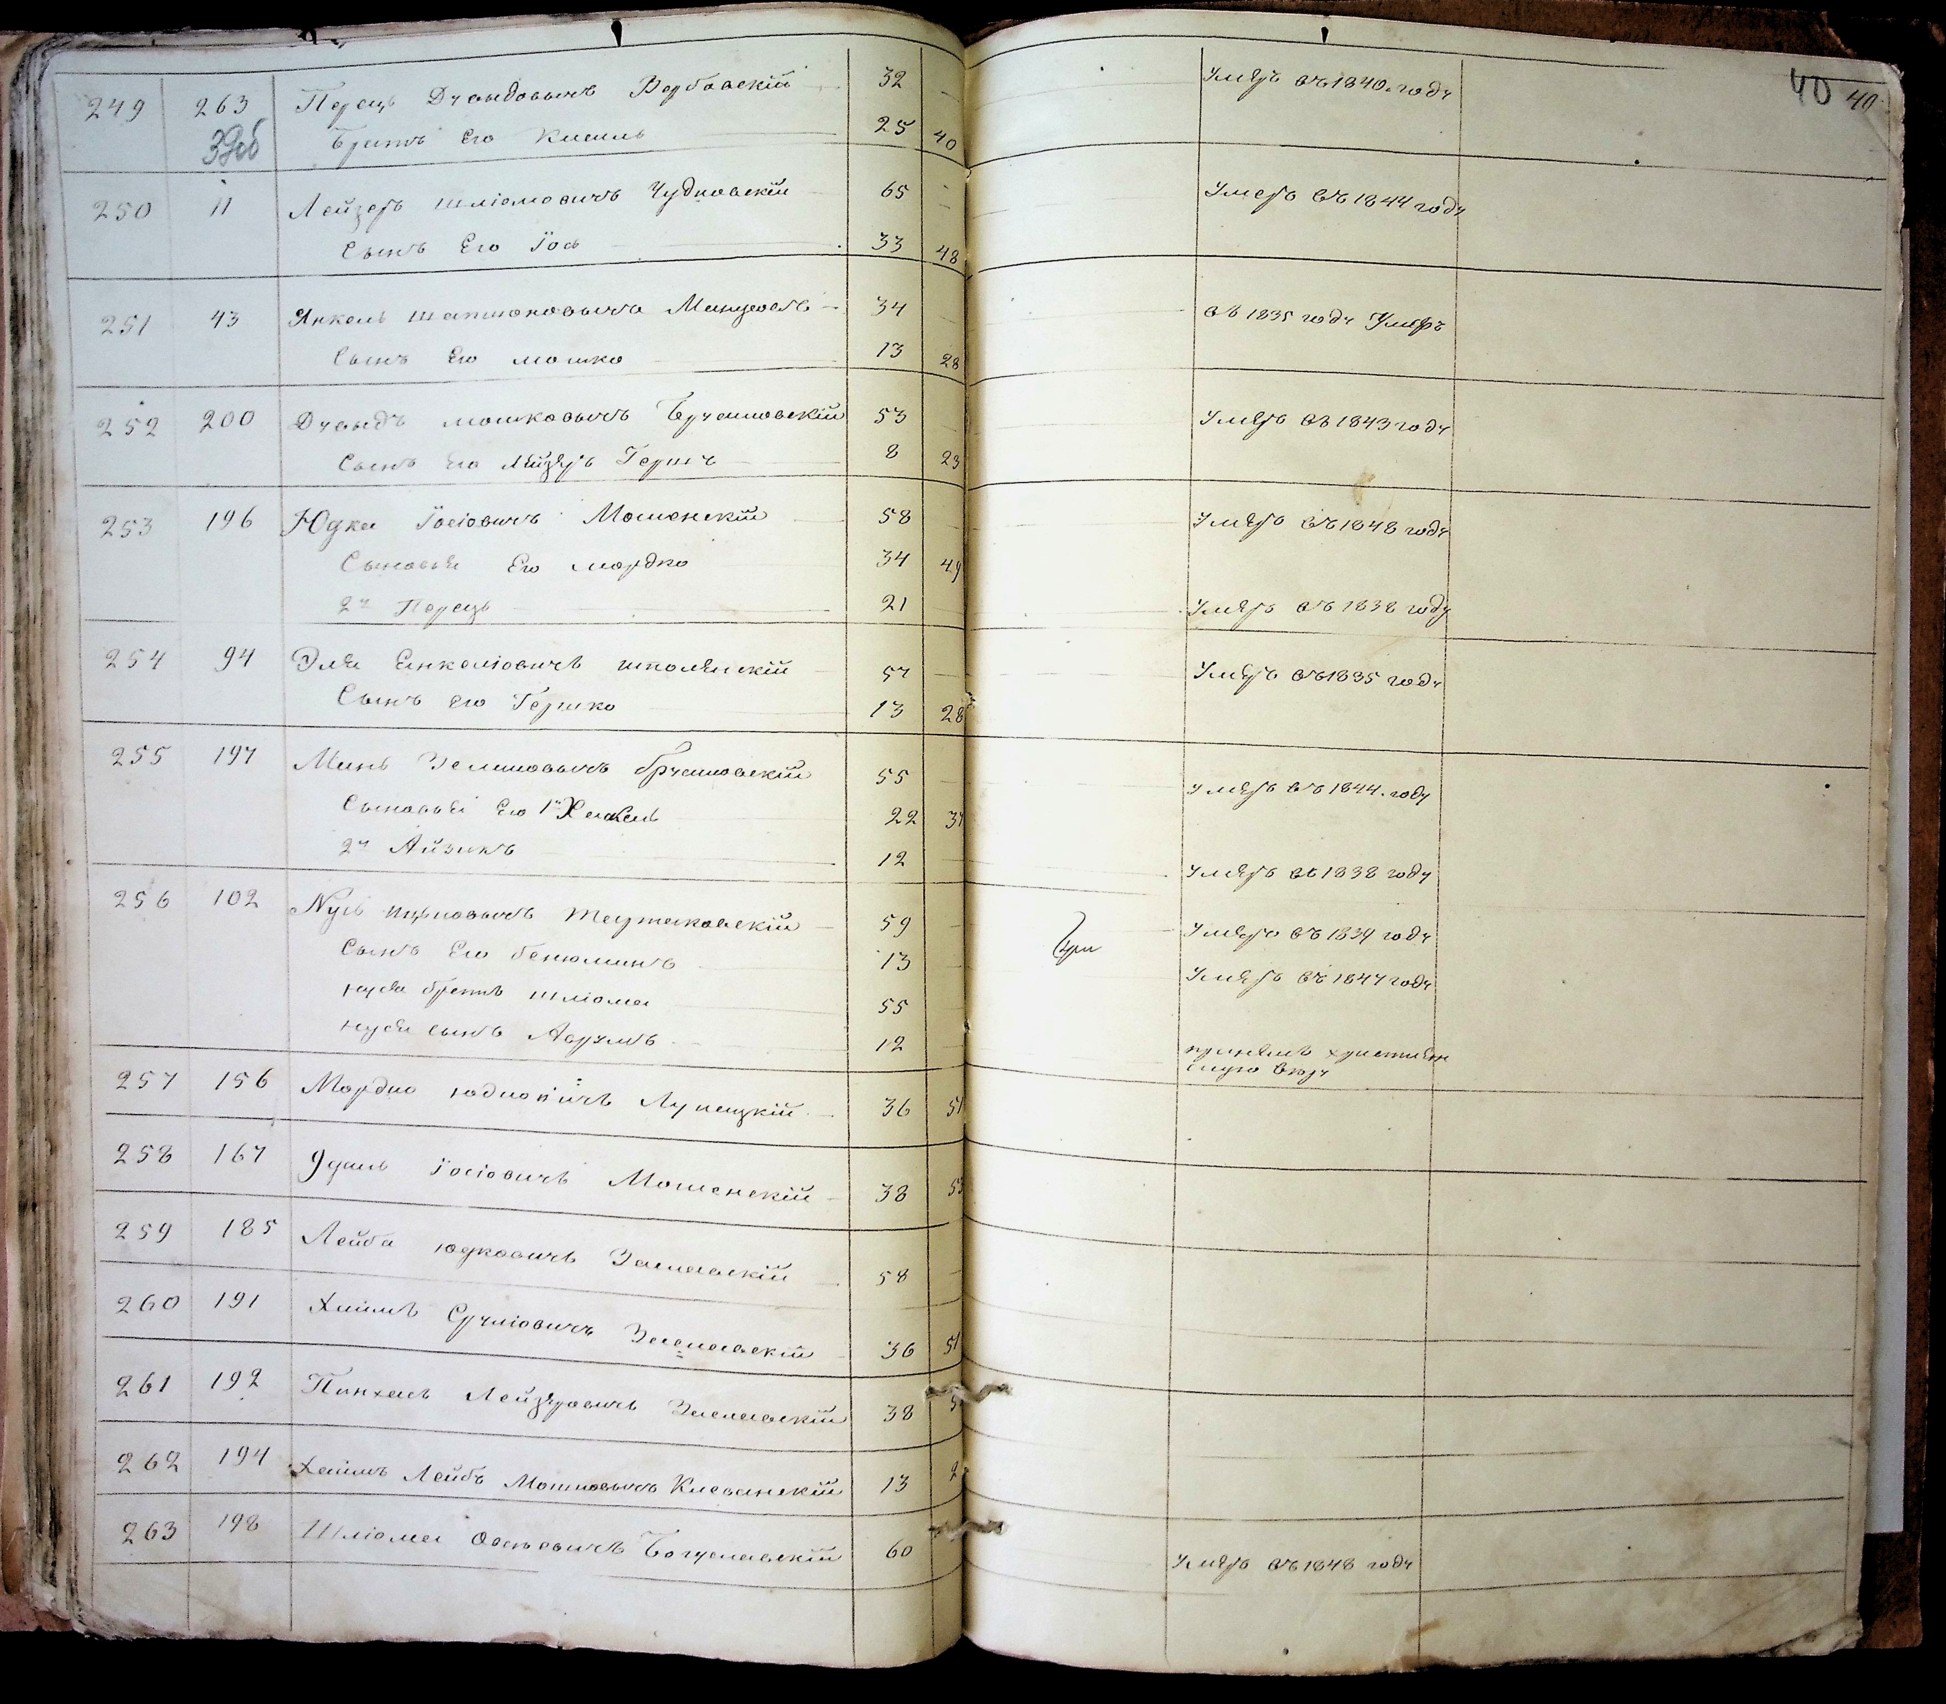 40 40
249 263 Перецъ Дувидовичъ Вербовскій 32 Умеръ въ 1840 году
Братъ Его Кисиль 25 40
250 11 Лейзеръ Шліомовичъ Чудновскій 65 Умеръ въ 1844 году
Сынъ Его Іось 33 48
251 43 Янкель Манусовъ 34 въ 1835 году Умеръ
Сынъ Его Мошко 13 28
252 200 Дувидъ Мошковичъ 53 Умеръ въ 1843 году
Сынъ Его Лейзеръ Гершъ 8 23
253 196 Юдка Іосіовичъ Мошенскій 58 Умеръ въ 1848 году
Сыновья Его Мордко 34 49
2й Перецъ 21 Умеръ въ 1838 году
254 94 Эля Янкеліовичъ Шполянскій 57 Умеръ въ 1835 году
Сынъ Его Гершко 13 28
255 197 55 Умеръ въ 1844 году
Сыновья Его 1й 22 37
2й Айзикъ 12 Умеръ въ 1838 году
256 102 Нусь Ицковичъ 59 Умеръ въ 1839 году
Сынъ Его Бенюминъ 13 Умеръ въ 1847 году
Нуся братъ Шліома 55
Нуся сынъ Аврумъ 12 принялъ христіян
скую веру
257 156 Мордко Юдковичъ 36 51
258 167 Іосіовичъ Мошенскій 38 53
259 185 Лейба Юдковичъ Заславскій 58
260 191 Хаимъ Сруліовичъ Заславскій 36 51
261 192 Пинхасъ Лейзеровичъ Заславскій 38
262 194 Хаимъ Лейбъ Мошковичъ Клеванскій 13
263 198 Шліома Богуславскій 60 Умеръ въ 1848 году